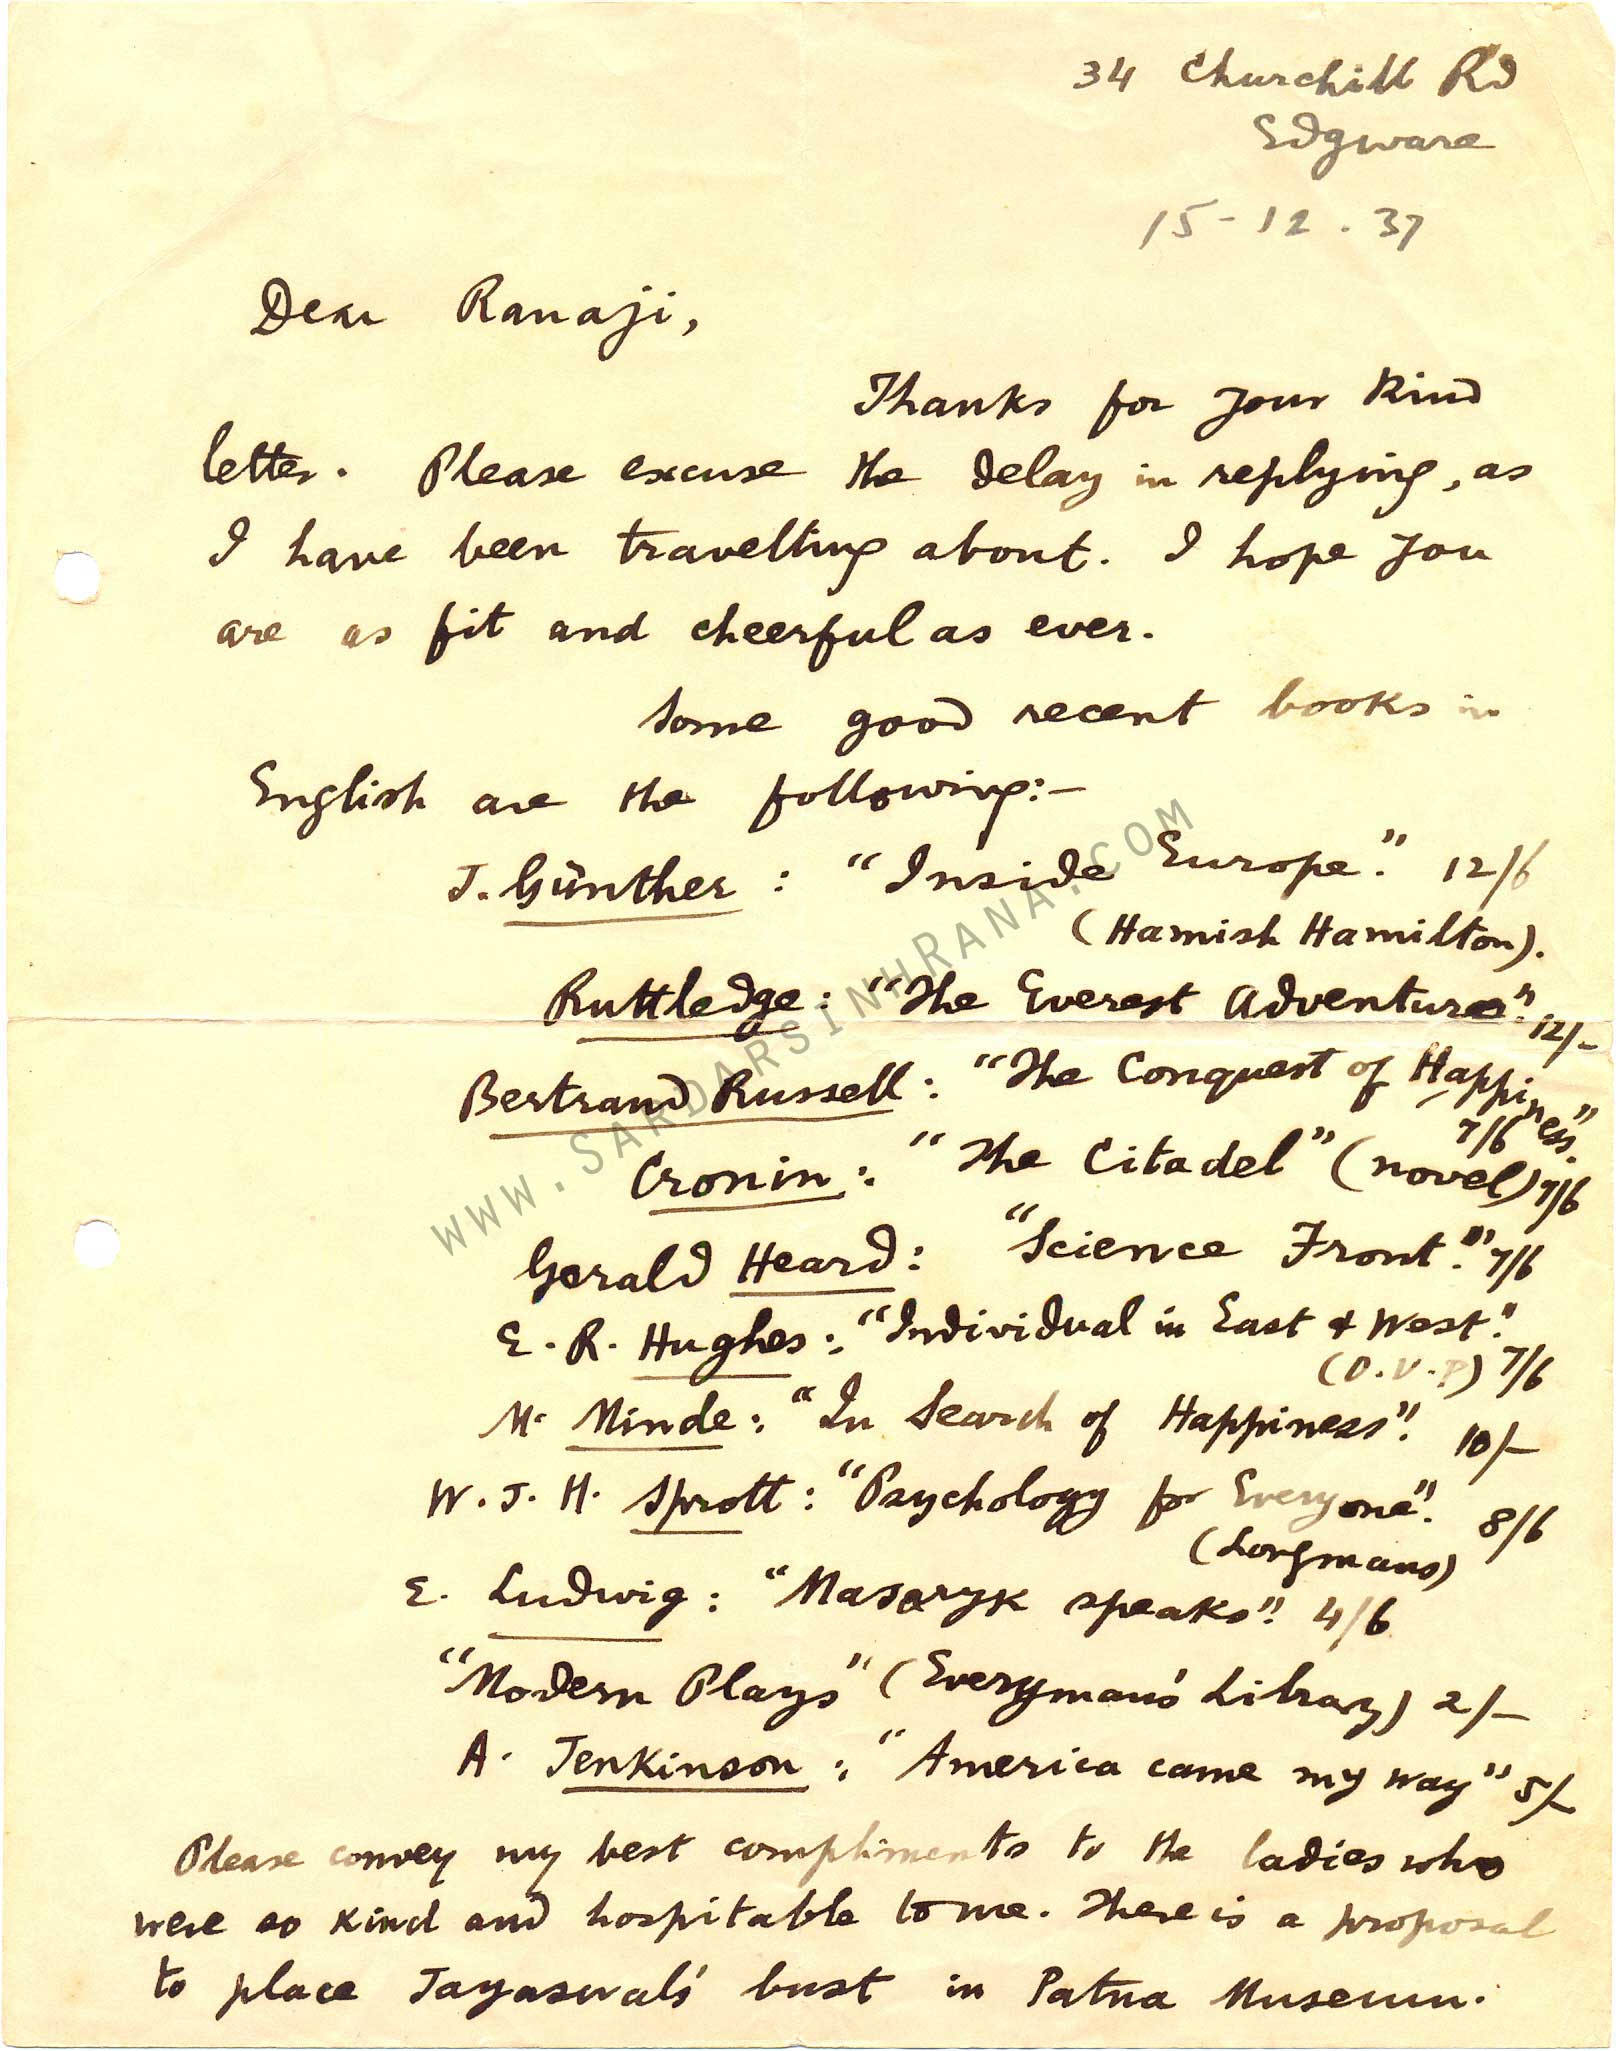 34 Churchill Rd
Edgware
15-12.37
Dear Ranaji,
Thanks for your kind
letter. Please excuse the delay in replying, as
I have been travelling about. I hope you
are as fit and cheerful as ever.
Some good recent books in
English are the following:-
J. Günther : "Inside Europe." 12/6
(Hamish Hamilton).
Ruttledge : "The Everest Adventure". 12/-
Bertrand Russell : "The Conquest of Happiness".
7/6
Cronin : "The Citadel" (novel) 7/6
Gerald Heard : "Science Front." 7/6
E. R. Hughes : "Individual in East & West".
(O.U.P) 7/6
M. Minde : "In Search of Happiness". 10/-
W. J. H. Sprott : "Psychology for Everyone". 8/6
(Longmans)
E. Ludwig : "Masaryk speaks". 4/6
"Modern Plays" (Everyman's Library) 2/-
A. Jenkinson : "America came my way" 5/-
Please convey my best compliments to the ladies who
were so kind and hospitable to me. There is a proposal
to place Jayaswal's bust in Patna Museum.
WWW.SARDARSINHRANA.COM